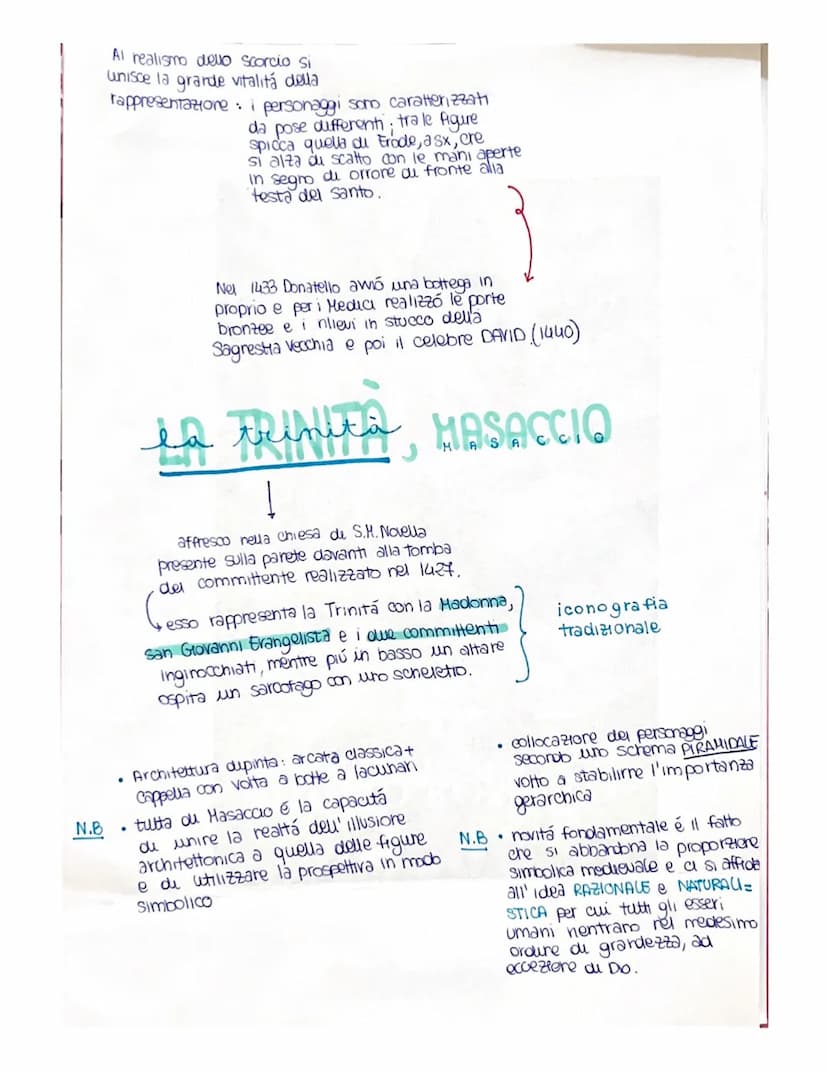 Al realismo dello scorcio si
unisce la grande vitalitá della
rappresentazione : i personaggi sono caratterizzati
da pose differenti ; tra le figure
spicca quella di Erode, a sx, che
si alza di scatto con le mani aperte
in segno di orrore di fronte alla
testa del santo.
Nel 1433 Donatello avviò una bottega in
proprio e per i Medici realizzó le porte
bronzee e i rilievi in stucco della
Sagrestia Vecchia e poi il celebre DAVID. (1440)
LA TRINITÀ, MASACCIO
la trinità MASACCIO
affresco nella chiesa di S.M. Novella
presente sulla parete davanti alla tomba
del committente realizzato nel 1427.
esso rappresenta la Trinitá con la Madonna,
san Giovanni Evangelista e i due committenti
inginocchiati, mentre piú in basso un altare
ospita un sarcofago con uno scheletro.
iconografia
tradizionale
• Architettura dipinta : arcata classica +
cappella con volta a botte a lacunari
N.B • tutta di Masaccio é la capacitá
di unire la realtá dell' illusione
architettonica a quella delle figure
e di utilizzare la prospettiva in modo
simbolico
• collocazione dei personaggi
secondo uno schema PIRAMIDALE
volto a stabilirne l'importanza
gerarchica
N.B • novitá fondamentale é il fatto
che si abbandona la proporzione
simbolica medievale e ci si affida
all' idea RAZIONALE e NATURALI=
STICA per cui tutti gli esseri
umani rientrano nel medesimo
ordine di grandezza, ad
eccezione di Dio.